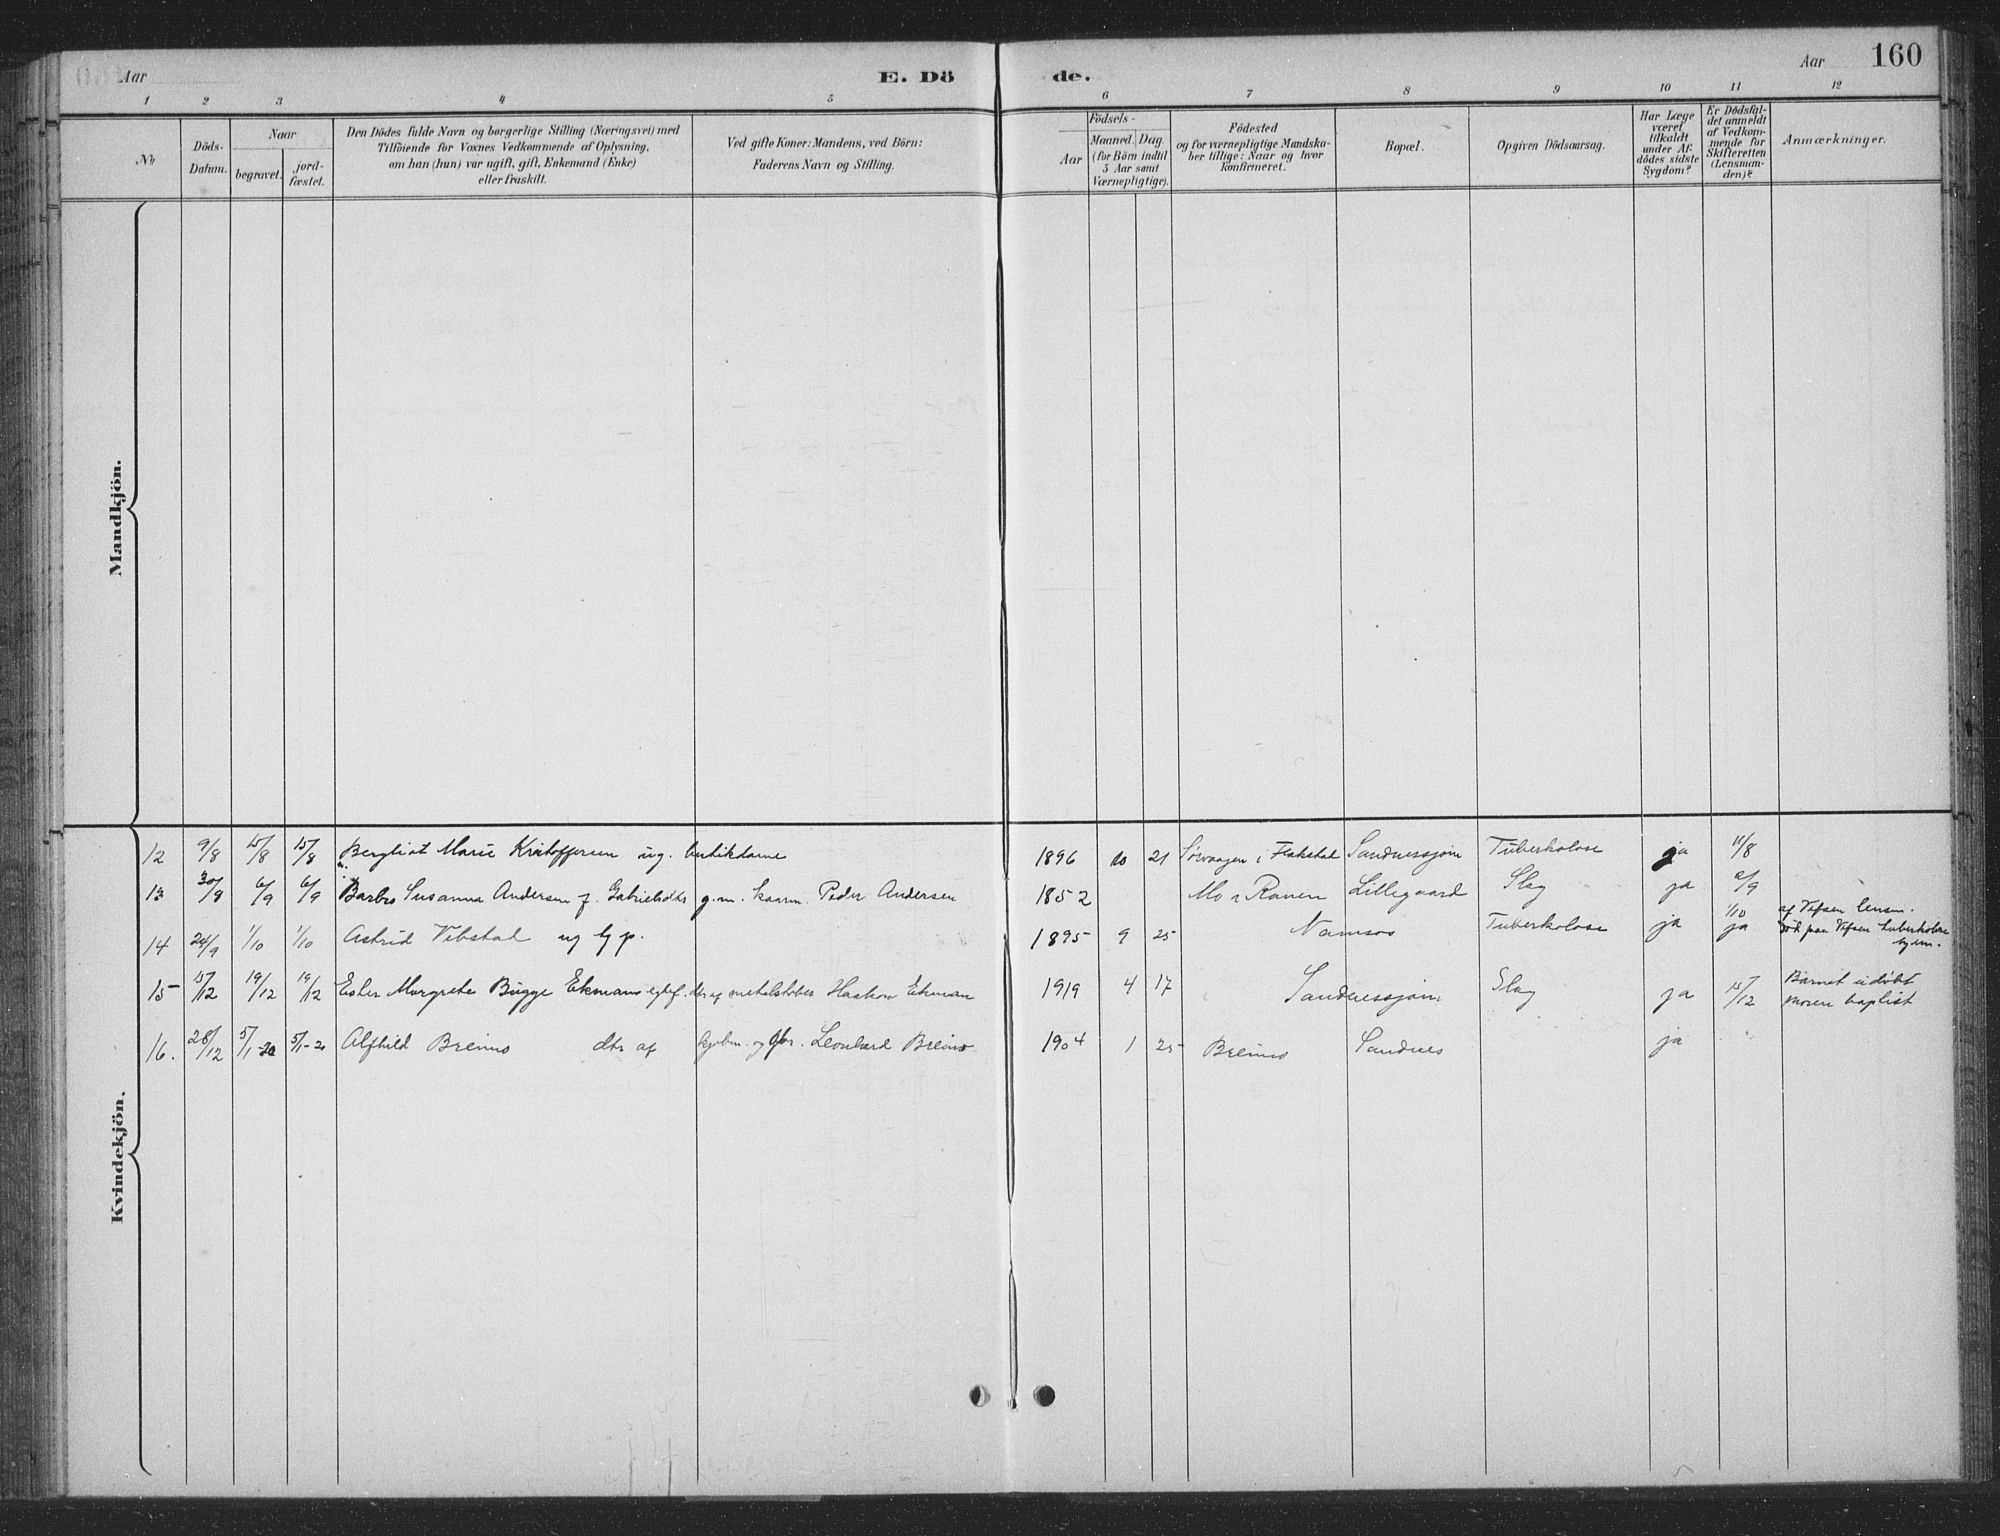 Aar
E. Dö
de.
Aar
160
1 2 3 4 5 6 7 8 9 10 11 12
No
Döds-Datum.
Naar
begravet.
jordfæstet.
Den Dödes fulde Navn og borgerlige Stilling (Næringsvei) med
Tilföiende for Voxnes Vedkommende af Oplysning,
om han (hun) var ugift, gift, Enkemand (Enke)
eller fraskilt.
Ved gifte Koner: Mandens, ved Börn:
Faderens Navn og Stilling.
Födsels-
Aar
Maaned. Dag.
(for Börn indtil
5 Aar samt
Værnepligtige).
Födested
og for værnepligtige Mandska-
ber tillige: Naar og hvor
konfirmeret.
Bopæl.
Opgiven Dödsaarsag.
Har Læge
været
tilkaldt
under Af-
dödes sidste
Sygdom?
Er Dödsfal-
det anmeldt
af Vedkom-
mende for
Skifteretten
(Lensman-
den)?
Anmærkninger.
Mandkjön.
Kvindekjön.
12 9/8 15/8 15/8 Bergliot Marie Kristoffersen ug. butikdame 1896 10 21 Sörvaagen i Flakstad Sandnessjøen Tuberkolose ja 11/8
13 30/8 6/9 6/9 Barbro Susanna Andersen f. Gabrielsdtr g.m. kaarm. Peder Andersen 1852 Mo i Ranen Lillegaard Slag ja 2/9
14 24/9 1/10 1/10 Astrid Vibstad ug tj p. 1895 9 25 Namsos Tuberkolose ja 1/10 ja af Vefsen lensm.
död paa Vefsen tuberkolose
hjem.
15 15/12 19/12 19/12 Ester Margrethe Bugge Ekmans egtef. dtr af Haakon Ekman 1919 4 17 Sandnessjøen Slag ja 15/12 Barnet udöbt
moren baptist
16. 28/12 5/1-20 5/1-20 Alfhild Breimo dtr af kjøbm. og gbr. Leonhard Breimo 1904 1 25 Breimo Sandnes ja